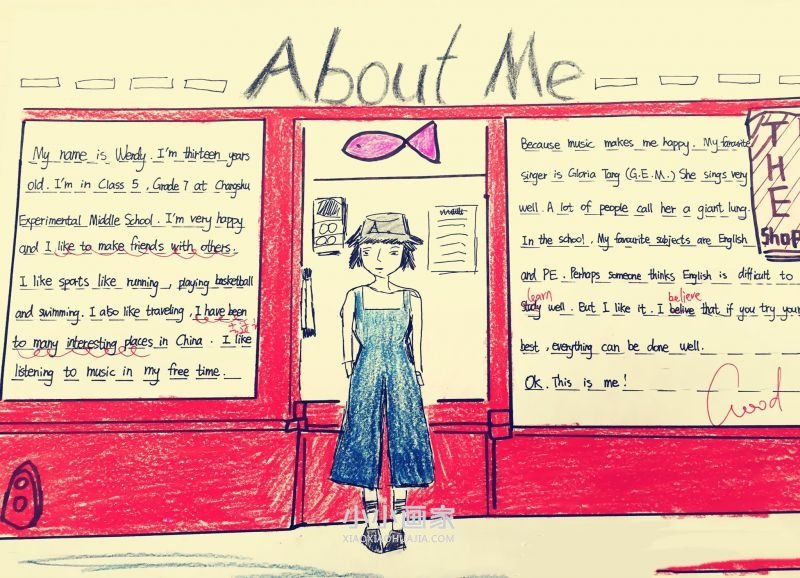 About Me
My name is Wendy. I'm thirteen years
old. I'm in Class 5, Grade 7 at Changshu
Experimental Middle School. I'm very happy
and I like to make friends with others.
I like sports like running, playing basketball
and swimming. I also like traveling, I have been
to many interesting places in China. I like
listening to music in my free time.
A
Because music makes me happy. My favourite
singer is Gloria Tang (G.E.M.) She sings very
well. A lot of people call her a giant lung.
In the school, My favourite subjects are English
and PE. Perhaps someone thinks English is difficult to
learn believe
study well. But I like it. I belive that if you try your
best, everything can be done well.
Ok. This is me!
Good
THE
SHOP
小小画家
XIAOXIAOHUAJIA.COM